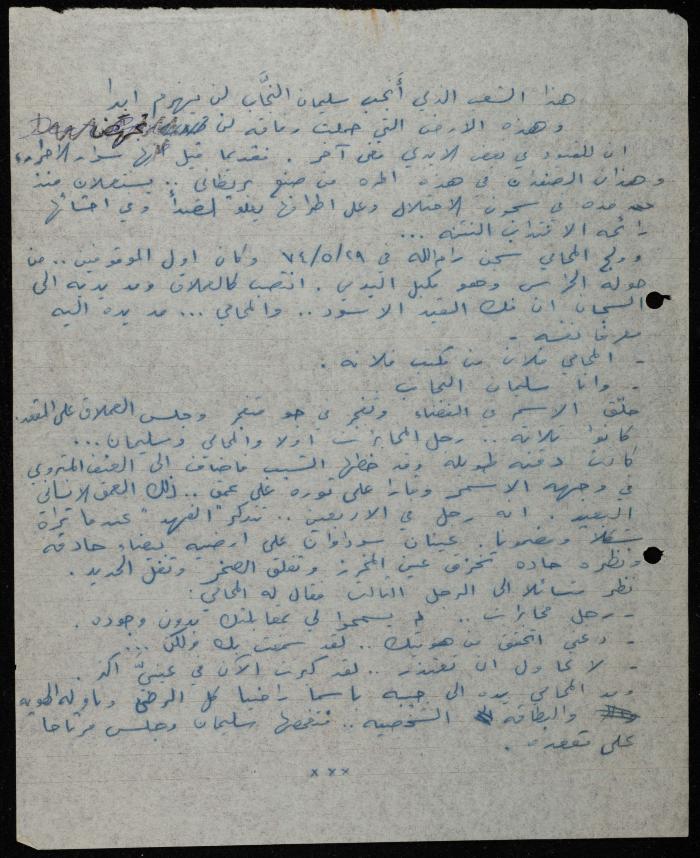 هذا الشعب الذي أَنجب سليمان النجَّاب لن ينهزم ابدا
وهذه الارض التي حملت رفاقه لن
ان للقيود في بعض الايدي معنى آخر . فقديما قيل انها سوار للاحرار،
وهذان الصفدان في هذه المره من صنع بريطاني .. يستعملان منذ
مده في سجون الاحتلال وعلى اطرافها يعلو الصدأ وفي احشائها
رائحه الافتراءات النتنه ...
وولج المحامي سجن رام الله في ٧٤/٥/٢٩ وكان اول الموقوفين .. من
حوله الحراس وهو مكبل اليدين . انتصب كالعملاق ومد يديه الى
السجان ان فك القيد الاسود .. والمحامي ... مد يده اليه
معرفا نفسه -
- المحامي فلان من مكتب فلانه .
- وانا سليمان النجاب
حلق الاسم في الفضاء وتفجر في جو متفجر وجلس العملاق على المقعد .
كانوا ثلاثه .. رجل المخابرات اولا والمحامي وسليمان ...
كانت ذقنه طويله وقد خطها الشيب فاضاف الى العنف المتروي
في وجهه الاسمر وقارا على ثوره على عمق .. ذلك العمق الانساني
البعيد . انه رجل في الاربعين .. تذكر "الفهد" عندما تراه
شكلا ومضمونا . عينان سوداوان على ارضيه بيضاء حادقه
ونظره حاده تخترق عين المخرز وتفلق الصخر وتفل الحديد .
نظر متسائلا الى الرجل الثالث فقال له المحامي :
- رجل مخابرات .. لم يسمحوا لي بمقابلتك بدون وجوده .
- دعني اتحقق من هويتك .. لقد سمعت بك ولكن ...
- لا تحاول ان تعتذر .. لقد كبرت الآن في عينيّ اكثر .
ومد المحامي يده الى جيبه باسما راضيا كل الرضى وناوله الهويه
والبطاقه الشخصيه .. تفحصها سليمان وجلس مرتاحا
على مقعده .
×××